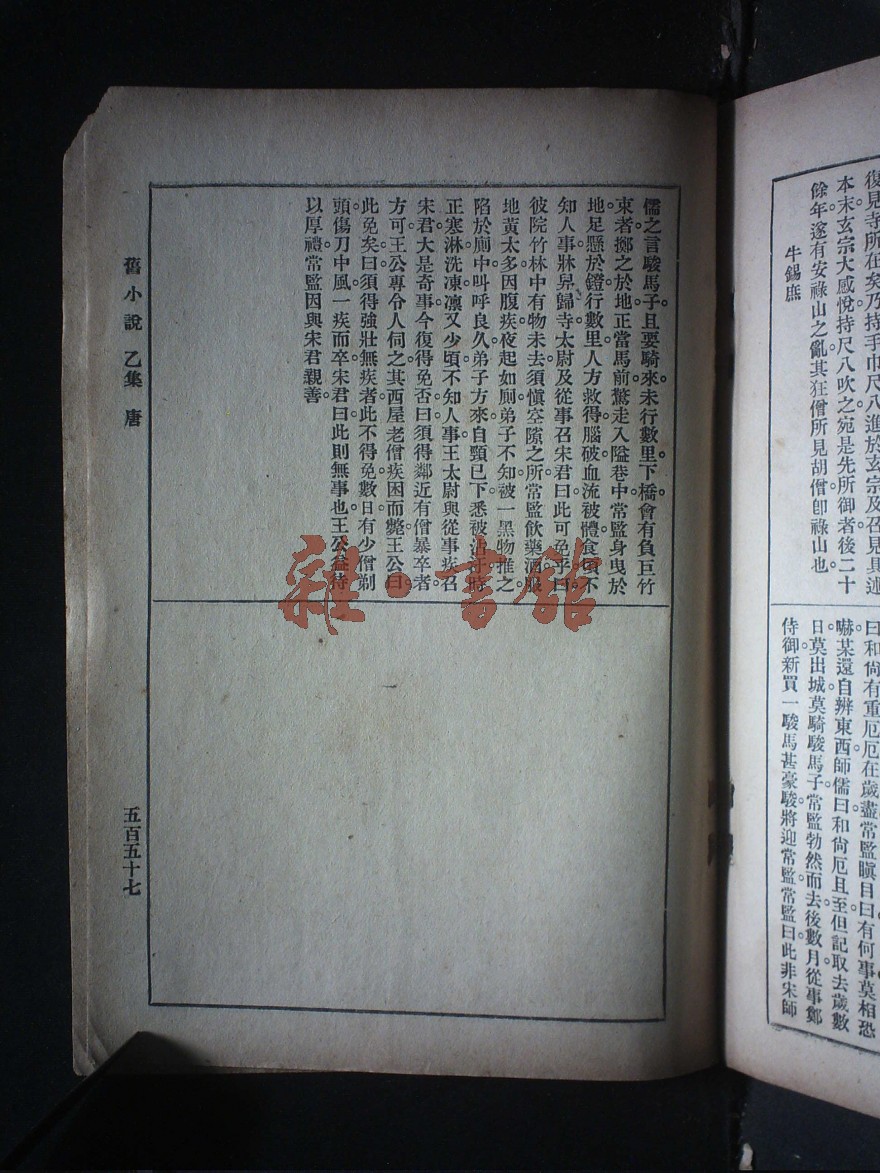 復見寺所在矣。乃持手巾尺八進於玄宗及召見具述
本末玄宗大感悅持尺八吹之宛是先所御者後二十
餘年。遂有安祿山之亂。其狂僧所見胡僧卽祿山也。
牛錫庶
曰和尙有重厄厄在歲盡常監瞋目曰有何事莫相恐
嚇某還自辨東西師儒曰和尙厄且至但記取去歲數
日莫出城莫騎駿馬子常監勃然而去後數月從事鄭
侍御新買一駿馬甚豪駿將迎常監常監曰此非宋師
儒之言駿馬子。且要騎來。未行數里。下橋。會有負巨竹
束者。擲之於地。正當馬前。驚走入隘巷中。常監身曳於
地。足懸於鐙。行數里。人方救得。腦破血流被體。食頃不
知人事。牀舁歸寺。太尉及從事召宋君曰。此可免乎。曰。
彼院竹林中。有物未去。須愼空隙之所。常監飲藥酒服
地黃太多。因腹疾夜起如廁。弟子不知。被一黑物推之。
陷於廁中。叫呼良久。弟子方來。自頸已下。悉被沾汙。時
正寒。淋洗凍凜。又少頃不知人事。王太尉與從事疾召
宋君。大是奇事。今復得免否。曰。須得鄰近有僧暴卒者
方可。王公專令人伺之。其西屋老僧疾困而斃。王公曰
此免矣。曰。須得強壯無疾者。此不得免。數日。有少僧剃
頭傷刀中風。一疾而卒。宋君曰。此則無事也。王公益待
以厚禮。常監因與宋君親善。
舊小說 乙集 唐
五百五十七
雜·書館